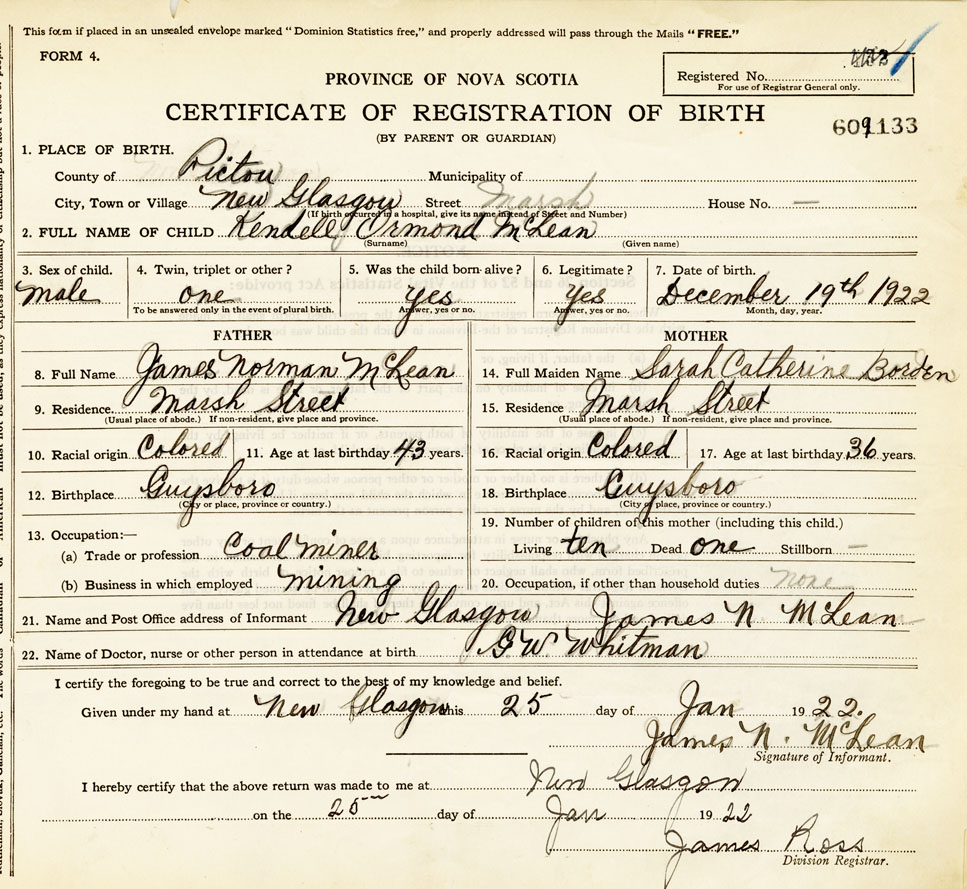 This form if placed in an unsealed envelope marked "Dominion Statistics free," and properly addressed will pass through the Mails "FREE."
FORM 4.
PROVINCE OF NOVA SCOTIA
Registered No.
For use of Registrar General only.
CERTIFICATE OF REGISTRATION OF BIRTH
(BY PARENT OR GUARDIAN)
1. PLACE OF BIRTH.
County of Pictou Municipality of
City, Town or Village New Glasgow Street Marsh House No. —
(If birth occurred in a hospital, give its name instead of Street and Number)
2. FULL NAME OF CHILD Kendell Ormond McLean
(Surname) (Given name)
3. Sex of child. Male
4. Twin, triplet or other? one
To be answered only in the event of plural birth.
5. Was the child born alive? Yes
Answer, yes or no.
6. Legitimate? Yes
Answer, yes or no.
7. Date of birth. December 19th 1922
Month, day, year.
FATHER
8. Full Name James Norman McLean
9. Residence Marsh Street
(Usual place of abode.) If non-resident, give place and province.
10. Racial origin Colored 11. Age at last birthday 43 years.
12. Birthplace Guysboro
(City or place, province or country.)
13. Occupation:—
(a) Trade or profession Coal miner
(b) Business in which employed mining
MOTHER
14. Full Maiden Name Sarah Catherine Borden
15. Residence Marsh Street
(Usual place of abode.) If non-resident, give place and province.
16. Racial origin Colored 17. Age at last birthday 36 years.
18. Birthplace Guysboro
(City or place, province or country.)
19. Number of children of this mother (including this child.)
Living ten Dead one Stillborn —
20. Occupation, if other than household duties none
21. Name and Post Office address of Informant New Glasgow James N McLean
22. Name of Doctor, nurse or other person in attendance at birth G W Whitman
I certify the foregoing to be true and correct to the best of my knowledge and belief.
Given under my hand at New Glasgow this 25 day of Jan 1922.
James N. McLean
Signature of Informant.
I hereby certify that the above return was made to me at New Glasgow
on the 25 day of Jan 1922
James Ross
Division Registrar.